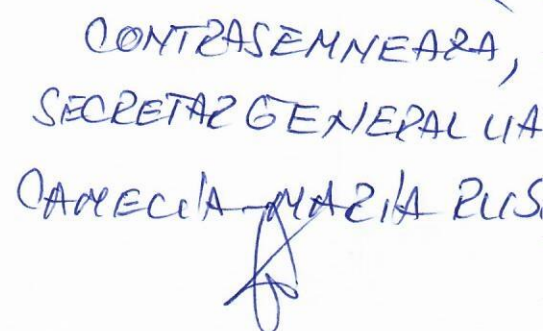 CONTRASEMNEAZA,
SECRETAR GENERAL UA
CAMELIA-MARIA RUS